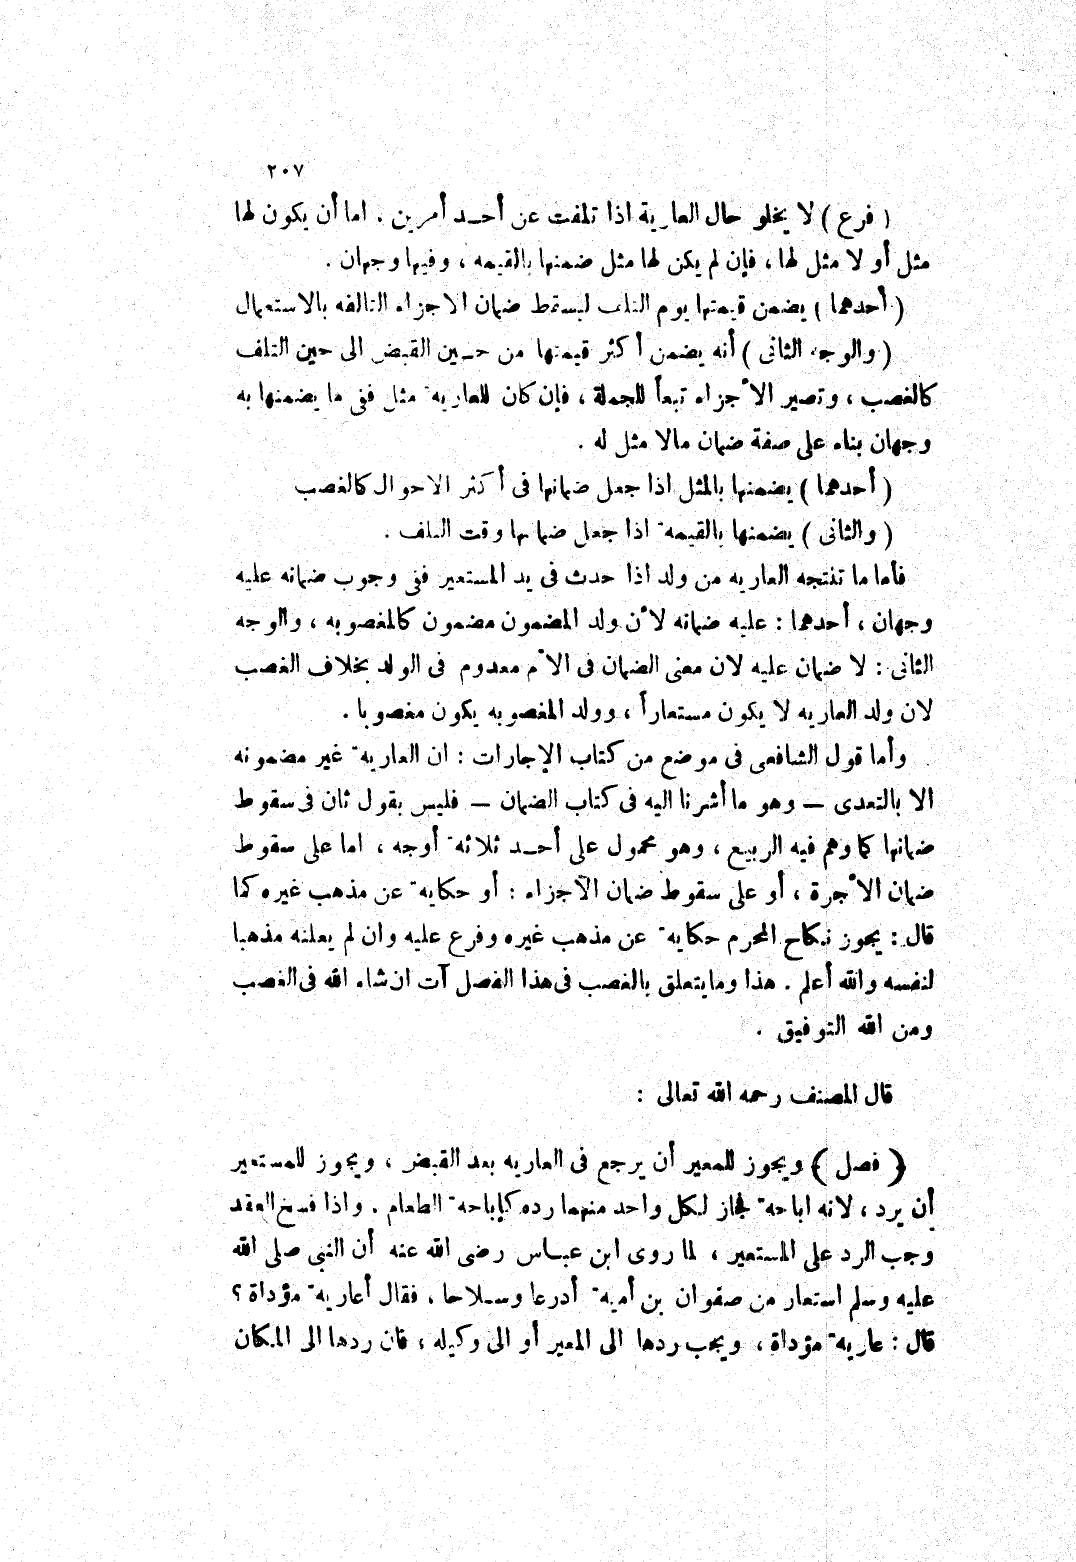 ٢٠٧
( فرع ) لا يخلو حال العارية اذا تلفت عن أحد أمرين . اما أن يكون لها
مثل أو لا مثل لها ، فإن لم يكن لها مثل ضمنها بالقيمه ، وفيها وجهان .
( أحدهما ) يضمن قيمتها يوم التلف ليسقط ضمان الاجزاء التالفه بالاستعمال
( والوجه الثانى ) أنه يضمن أكثر قيمتها من حين القبض الى حين التلف
كالغصب ، وتصير الأجزاء تبعاً للجملة ، فإن كان للعاريه مثل ففى ما يضمنها به
وجهان بناء على صفة ضمان مالا مثل له .
( أحدهما ) يضمنها بالمثل اذا جعل ضمانها فى أكثر الاحوال كالغصب
( والثانى ) يضمنها بالقيمه اذا جعل ضمانها وقت التلف .
فأما ما تنتجه العاريه من ولد اذا حدث فى يد المستعير ففى وجوب ضمانه عليه
وجهان ، أحدهما : عليه ضمانه لأن ولد المضمون مضمون كالمغصوبه ، والوجه
الثانى : لا ضمان عليه لان معنى الضمان فى الأم معدوم فى الولد بخلاف الغصب
لان ولد العاريه لا يكون مستعاراً ، وولد المغصوبه يكون مغصوبا .
وأما قول الشافعى فى موضع من كتاب الإجارات : ان العاريه غير مضمونه
الا بالتعدى — وهو ما أشرنا اليه فى كتاب الضمان — فليس بقول ثان فى سقوط
ضمانها كما وهم فيه الربيع ، وهو محمول على أحد ثلاثه أوجه ، اما على سقوط
ضمان الأجرة ، أو على سقوط ضمان الآجزاء : أو حكايه عن مذهب غيره كما
قال : يجوز نكاح المحرم حكايه عن مذهب غيره وفرع عليه وان لم يعلنه مذهبا
لنفسه والله أعلم . هذا وما يتعلق بالغصب فى هذا الفصل آت ان شاء الله فى الغصب
ومن الله التوفيق .
قال المصنف رحمه الله تعالى :
﴿ فصل ﴾ ويجوز للمعير أن يرجع فى العاريه بعد القبض ، ويجوز للمستعير
أن يرد ، لانه اباحه فجاز لكل واحد منهما رده كإباحه الطعام . واذا فسخ العقد
وجب الرد على المستعير ، لما روى ابن عباس رضى الله عنه أن النبى صلى الله
عليه وسلم استعار من صفوان بن أميه أدرعا وسلاحا ، فقال أعاريه مؤداة ؟
قال : عاريه مؤداة ، ويجب ردها الى المعير أو الى وكيله ، فان ردها الى المكان